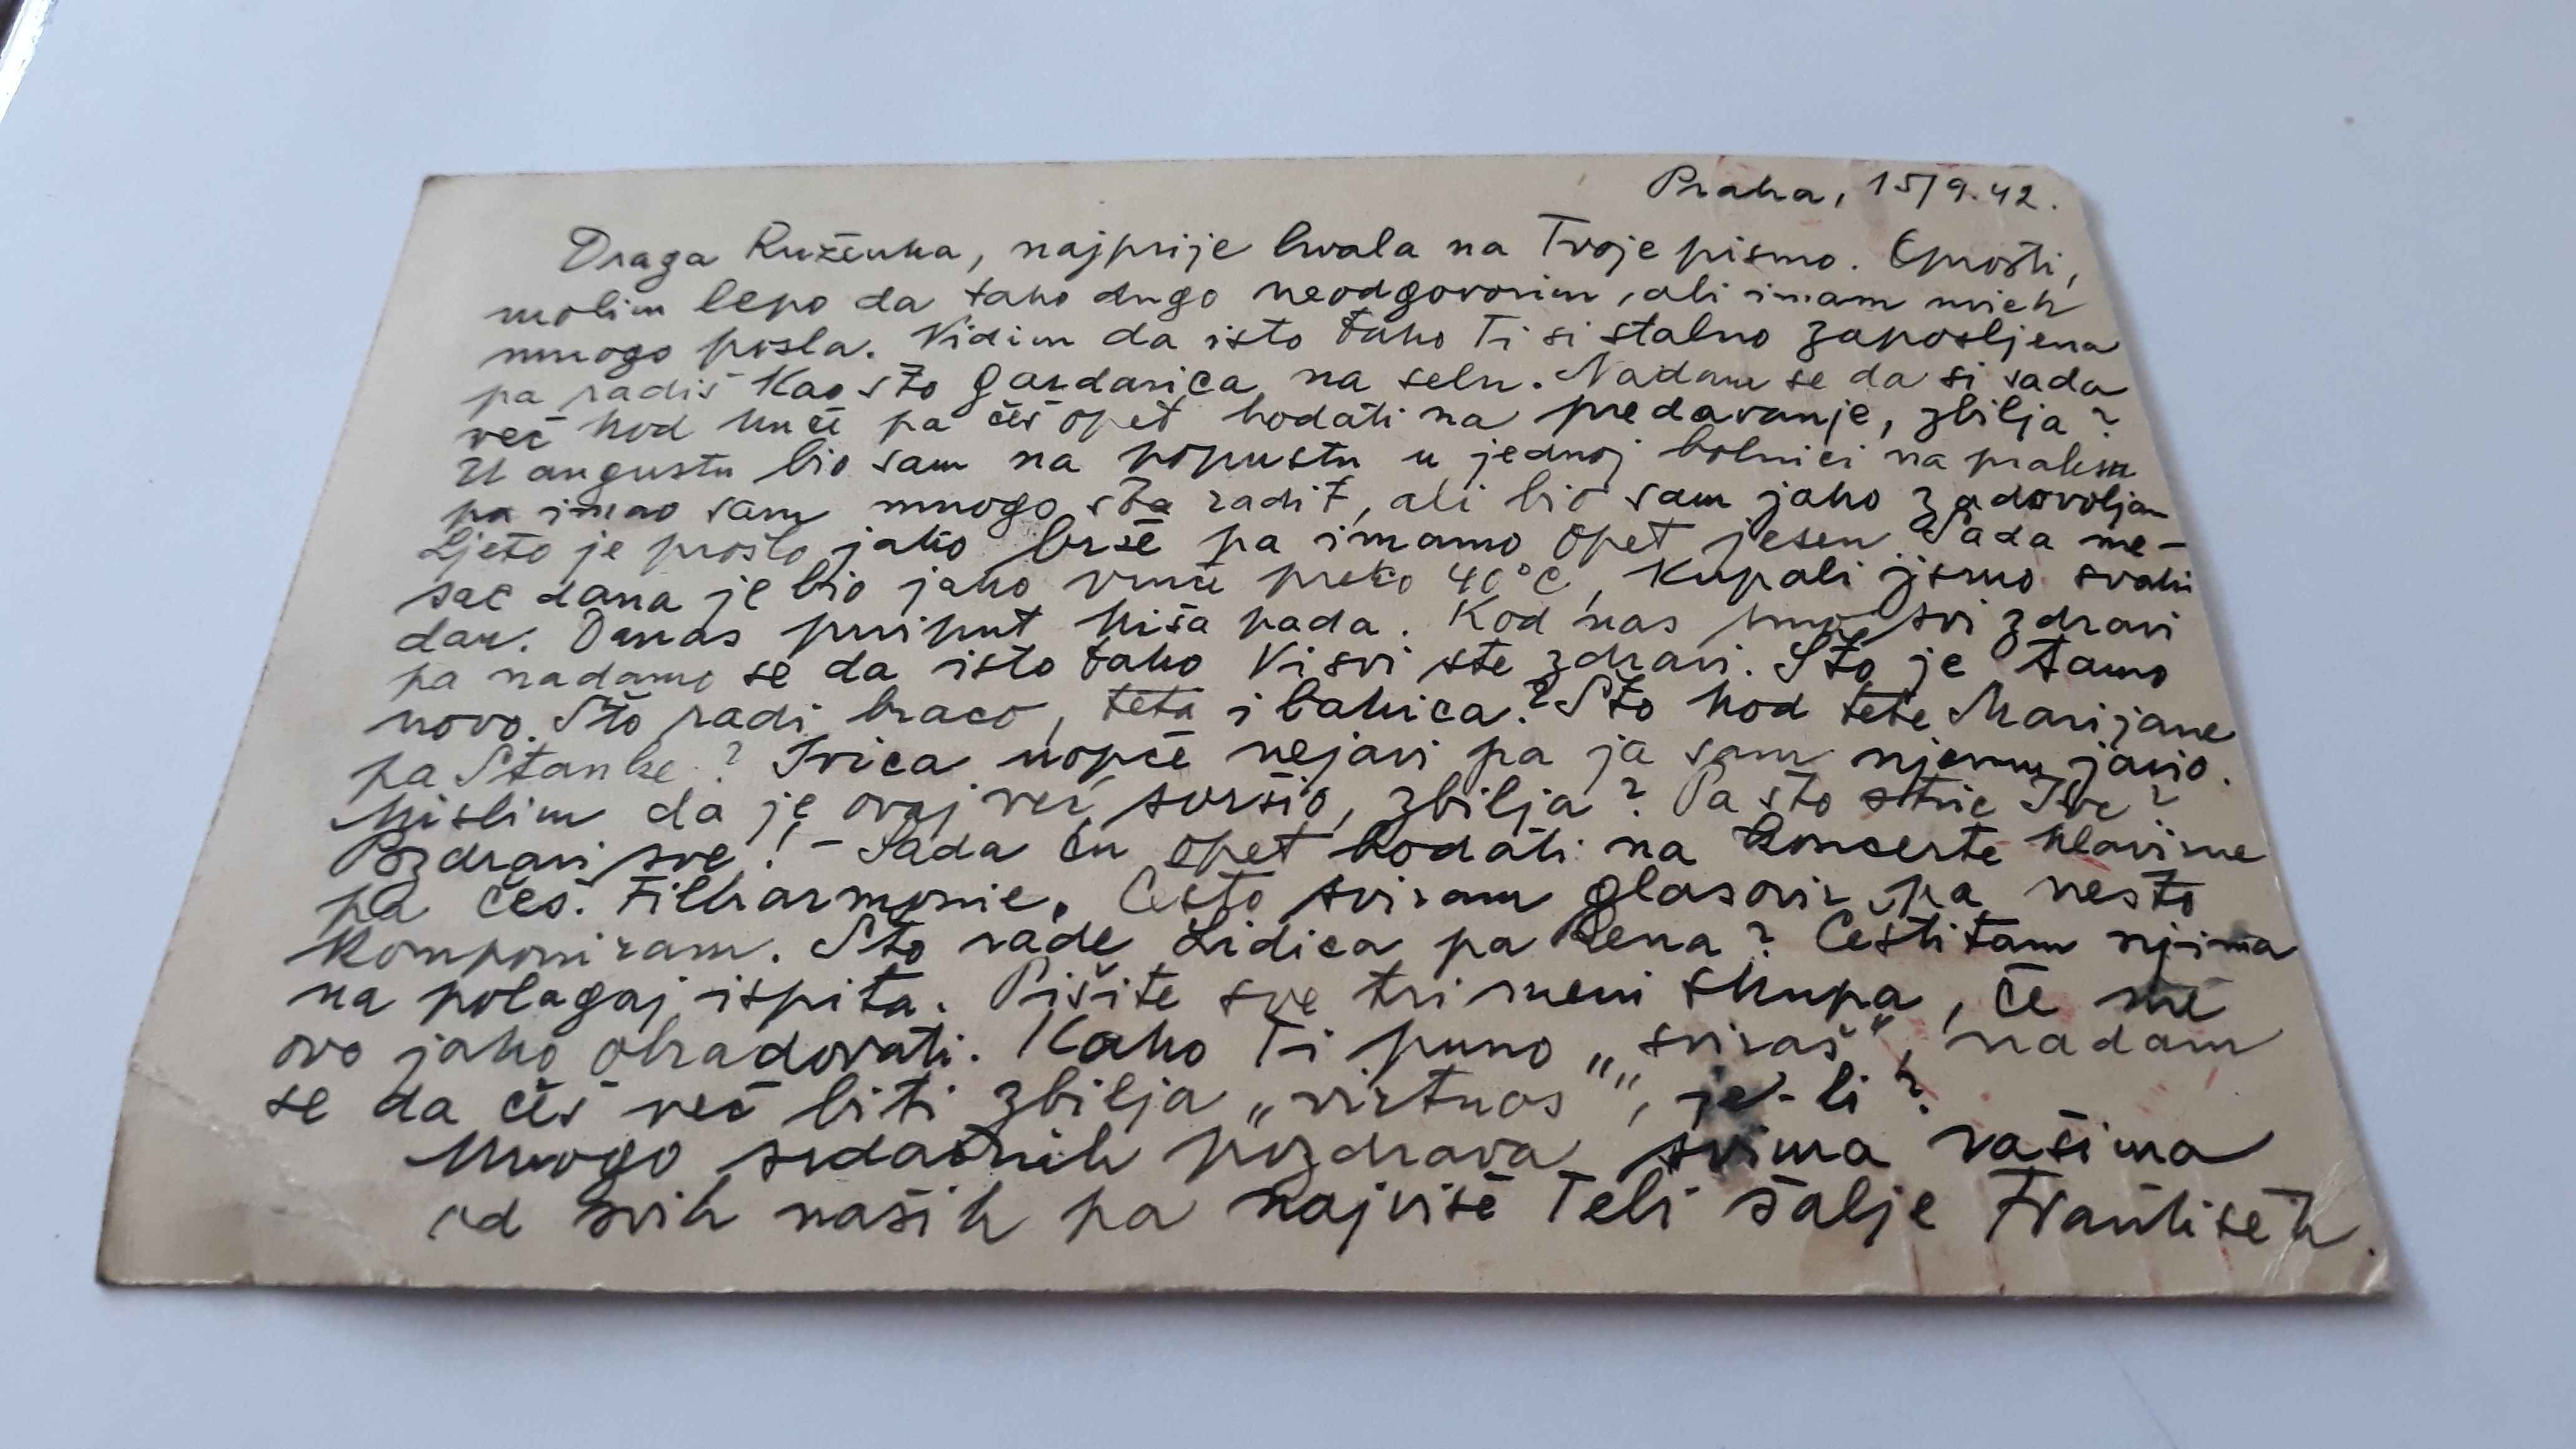 Praha, 15/9.42.
Draga Ruženka, najprije hvala na Tvoje pismo. Oprosti,
molim lepo da tako dugo neodgovorim, ali imam uvieh
mnogo posla. Vidim da isto tako Ti si stalno zaposljena
pa radiš kao što gazdarica na selu. Nadam se da si sada
več kod kuče pa češ opet hodati na predavanje, zbilja?
U augustu bio sam na popustu u jednoj bolnici na praksu
pa imao sam mnogo šta radit, ali bio sam jako zadovoljan
Ljeto je prošlo jako brše pa imamo opet jesen. Sada me-
sec dana je bio jako vruče preko 40°C, kupali jsmo svaki
dan. Danas prviput kiša pada. Kod nas smo svi zdravi
pa nadamo se da isto tako Vi svi ste zdravi. Što je tamo
novo. Što radi braco, teta i bakica? Što kod tete Marijane
pa Stanke? Ivica uopče nejavi pa ja sam njemu javio.
Mislim da je ovaj več svršio, zbilja? Pa što stric Ive?
Pozdravi sve! - Sada ču opet hodati na koncerte klavirne
pa čes. Filharmonie. Često sviram glasovir pa nešto
komponiram. Što rade Lidica pa Lena? Čestitam njima
na polagaj ispita. Pišite sve tri meni skupa, če mě
ovo jako obradovati. Kako Ti puno „sviraš", nadam
se da češ več biti zbilja „virtuos", je-li?
Mnogo srdačnih pozdrava svima vašima
od svih naših pa najviše Tebi šalje František.